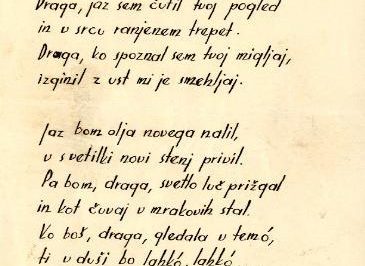 Draga, jaz sem čutil tvoj pogled
in v srcu ranjenem trepet.
Draga, ko spoznal sem tvoj migljaj,
izginil z ust mi je smehljaj.
Jaz bom olja novega nalil,
v svetilki novi stenj privil.
Pa bom, draga, svetlo luč prižgal
in kot čuvaj v mrakovih stal.
Ko boš, draga, gledala v temó,
ti v duši bo lahkó, lahkó